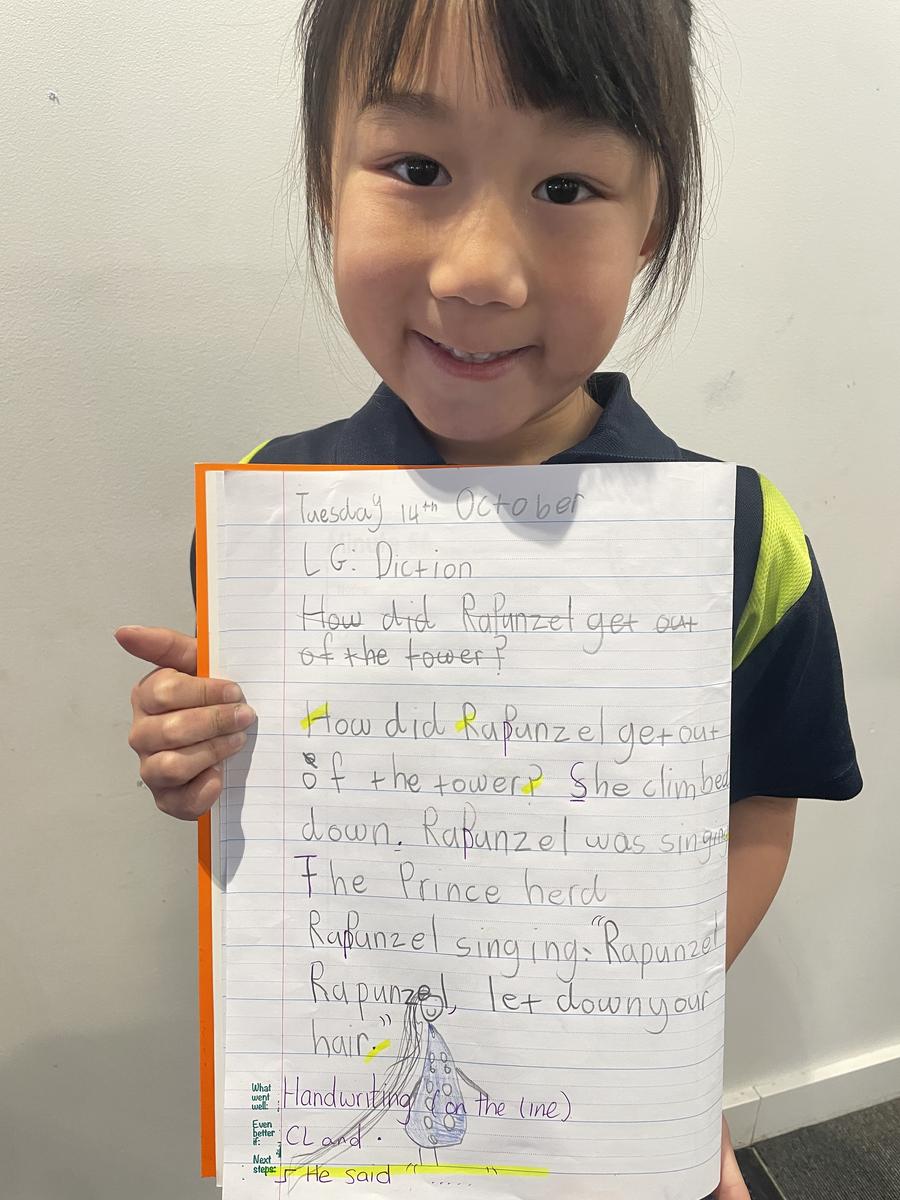 Tuesday 14th October
LG: Diction
How did Rapunzel get out
of the tower?
How did Rapunzel get out
of the tower? She climbed
down. Rapunzel was singing
The Prince herd
Rapunzel singing. "Rapunzel
Rapunzel, let down your
hair."
What went well: Handwriting (on the line)
Even better if: CL and .
Next steps: He said " ..... "